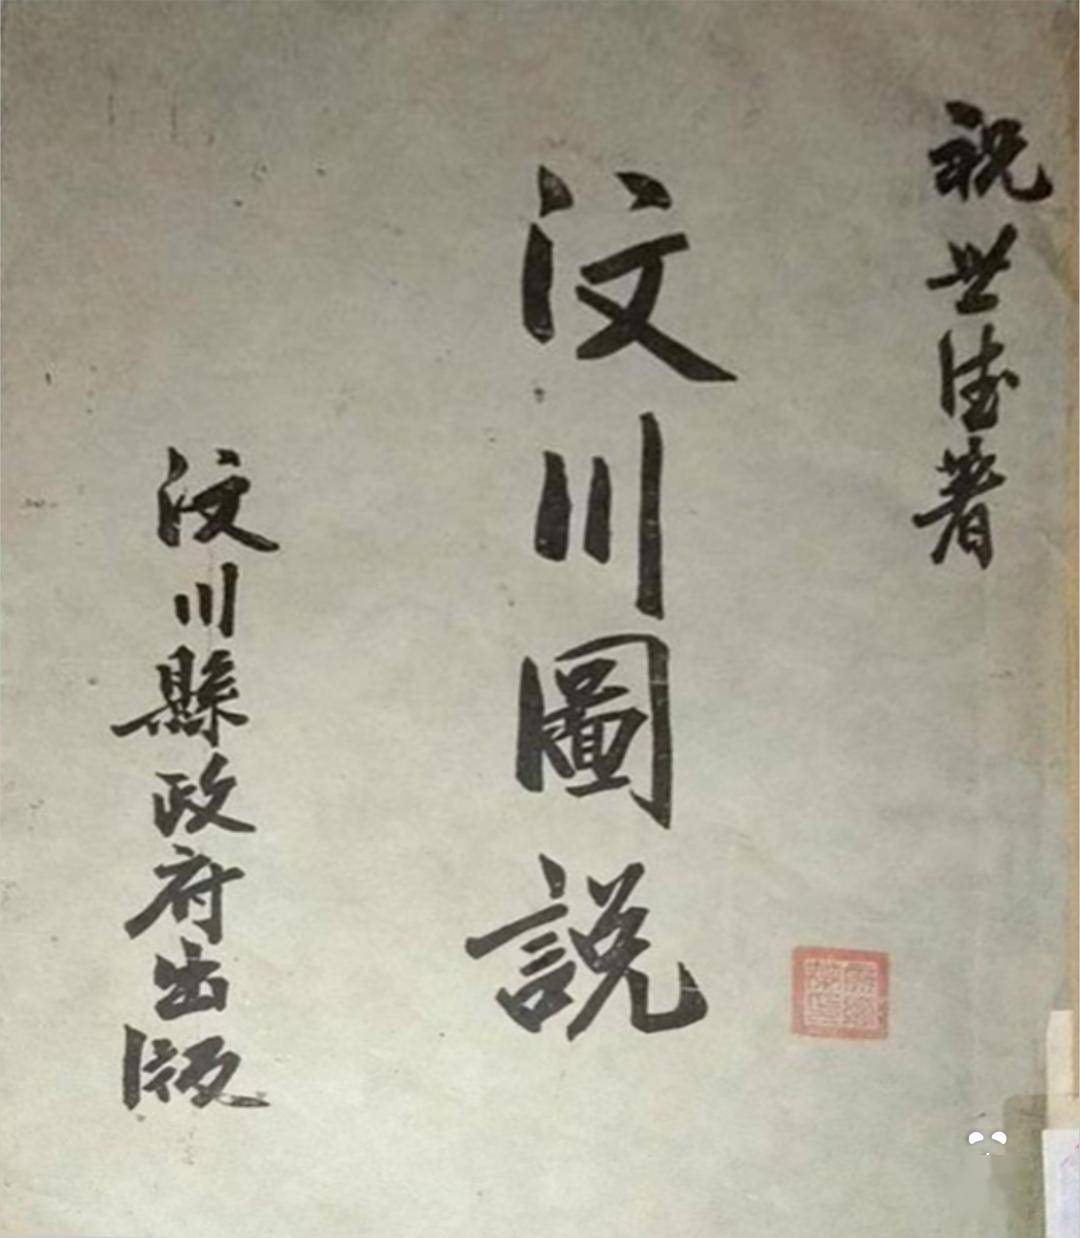 祝世德著
汶川圖説
汶川縣政府出版